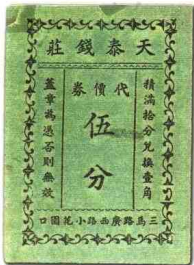 天泰錢莊
代價券
積滿拾分兌換壹角
伍分
蓋章為憑否則無效
三馬路廣西路小花園口